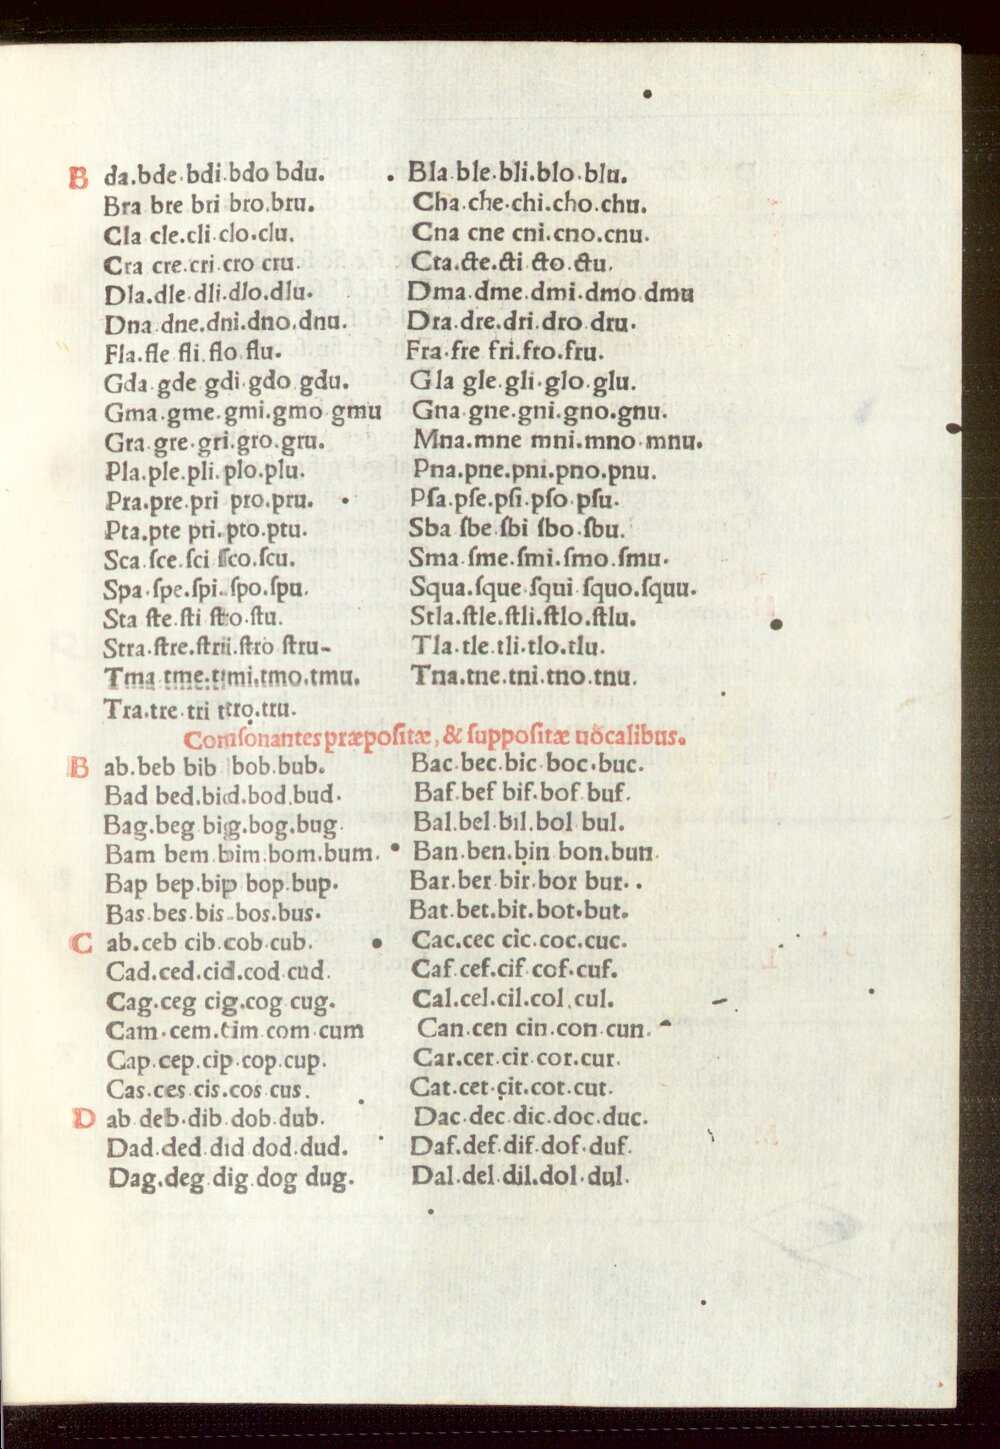 Bda.bde.bdi.bdo bdu. Bla ble.bli.blo.blu.
Bra bre bri bro.bru. Cha.che.chi.cho.chu.
Cla cle.cli clo.clu. Cna cne cni.cno.cnu.
Cra cre.cri cro cru. Cta.cte.cti cto.ctu.
Dla.dle dli.dlo.dlu. Dma.dme.dmi.dmo dmu
Dna dne.dni.dno.dnu. Dra.dre.dri.dro dru.
Fla.fle fli flo flu. Fra.fre fri.fro.fru.
Gda gde gdi gdo gdu. Gla gle.gli.glo.glu.
Gma.gme.gmi.gmo gmu Gna.gne.gni.gno.gnu.
Gra gre.gri.gro.gru. Mna.mne mni.mno mnu.
Pla.ple.pli plo.plu. Pna.pne.pni.pno.pnu.
Pra.pre.pri pro.pru. Pſa.pſe.pſi.pſo pſu.
Pta.pte pti.pto.ptu. Sba ſbe.ſbi ſbo.ſbu.
Sca ſce.ſci ſco.ſcu. Sma.ſme.ſmi.ſmo.ſmu.
Spa.ſpe.ſpi.ſpo.ſpu. Squa.ſque ſqui ſquo.ſquu.
Sta ſte.ſti ſto.ſtu. Stla.ſtle.ſtli.ſtlo.ſtlu.
Stra.ſtre.ſtri.ſtro ſtru- Tla.tle tli.tlo.tlu.
Tma tme.tmi.tmo.tmu. Tna.tne.tni.tno.tnu.
Tra.tre.tri tro.tru.
Conſonantes præpoſitæ, & ſuppoſitæ uocalibus.
Bab.beb bib bob.bub. Bac.bec.bic boc.buc.
Bad bed.bid.bod.bud. Baf.bef bif.bof buf.
Bag.beg big.bog.bug. Bal.bel.bil.bol bul.
Bam bem bim.bom.bum. Ban.ben.bin bon.bun.
Bap bep.bip bop.bup. Bar.ber bir.bor bur.
Bas.bes.bis.bos.bus. Bat.bet.bit.bot.but.
Cab.ceb cib.cob.cub. Cac.cec cic.coc.cuc.
Cad.ced.cid.cod cud. Caf cef.cif cof.cuf.
Cag.ceg cig.cog cug. Cal.cel.cil.col.cul.
Cam.cem.cim com cum Can.cen cin.con cun.
Cap.cep.cip.cop.cup. Car.cer.cir.cor.cur.
Cas.ces cis.cos cus. Cat.cet.cit.cot.cut.
Dab deb.dib.dob.dub. Dac.dec dic.doc.duc.
Dad.ded did dod.dud. Daf.def.dif.dof.duf.
Dag.deg dig dog dug. Dal.del dil.dol.dul.